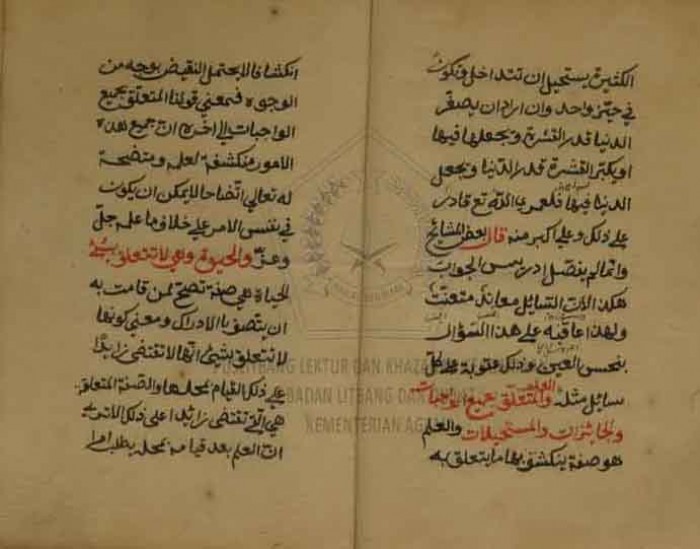 الكثيرة يستحيل ان تتداخل وتكون
في حيز واحد وان اراد ان يصغر
الدنيا قدر القشرة ويجعلها فيها
او يكبر القشرة قدر الدنيا ويجعل
الدنيا فيها فلعمري الله تع قادر
على ذلك وعلى اكبر منه قال بعض المشايخ
وانما لم يفصل ادريس الجواب
هكذا لان السائل معاند متعنت
ولهذا عاقبه على هذا السؤال
بنخس العين وذلك عقوبة كل
سايل مثله والعلم المتعلق بجميع الواجبات
والجايزات والمستحيلات والعلم
هو صفة ينكشف بها ما يتعلق به
انكشافا لا يحتمل النقيض بوجه من
الوجوه فمعني قولنا المتعلق بجميع
الواجبات الى اخره ان جميع هذه
الامور منكشفة لعلمه ومتضحة
له تعالي اتضاحا لا يمكن ان يكون
في نفس الامر على خلاف ما علمه جل
وعز والحيوة وهي لا تتعلق بشئ
الحياة هي صفة تصحح لمن قامت به
ان يتصف بالادراك ومعني كونها
لا تتعلق بشئ انها لا تقتضي زايدا
على ذلك القيام بمحلها والصفة المتعلقة
هي التي تقتضي زايدا على ذلك الا تري
ان العلم بعد قيامه بمحله يطلب امرا
PUSLITBANG LEKTUR DAN KHAZANAH
BADAN LITBANG DAN
KEMENTERIAN AGAMA